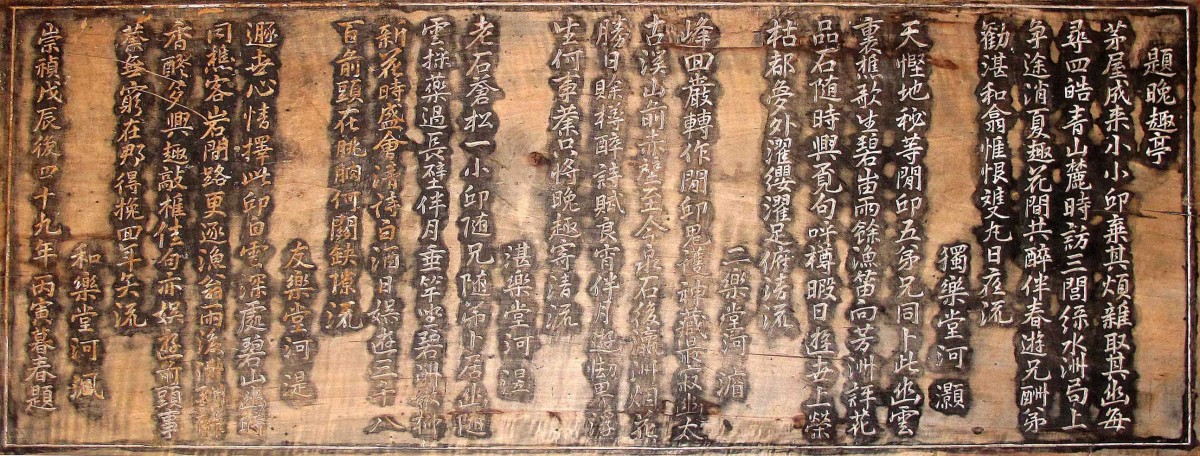 題晚趣亭
茅屋成來小小邱棄其煩雜取其幽每
尋四皓青山麓時訪三閭綠水洲局上
爭途消夏趣花間共醉伴春遊兄酬弟
勸湛和翕惟恨雙丸日夜流
獨樂堂河灝
天慳地秘等閒邱五弟兄同卜此幽雲
裏樵歌生碧岫雨餘漁笛向芳洲評花
品石随時興覓句呼樽暇日遊世上榮
枯都夢外濯纓濯足俯清流
二樂堂河湄
峰回巖轉作閒邱鬼護神藏最寂幽太
古溪山前赤壁至今泉石後瀛洲烟花
勝日賖樽醉詩賦良宵伴月遊勘浮
生何事業只將晚趣寄清流
湛樂堂河
老石蒼松一小邱随兄随弟卜居幽随
雲採藥過長壁伴月垂竿坐碧洲柳
新花時盛會清詩白酒日娯遊三千八
百前頭在眺胸何關鈌隙流
友樂堂河湜
遯世心情擇此邱白雲深處碧山幽時
同樵客岩間路更逐漁翁雨後洲
香醪多興趣敲椎佳句亦娯遊前頭事
業無窮在那得挽回年矢流
和樂堂河渢
崇禎戊辰後四十九年丙寅暮春題